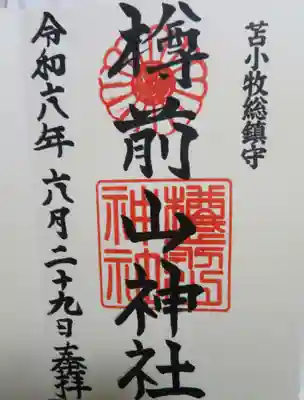 苫小牧総鎮守
樽前山神社
令和六年六月二十九日奉拝